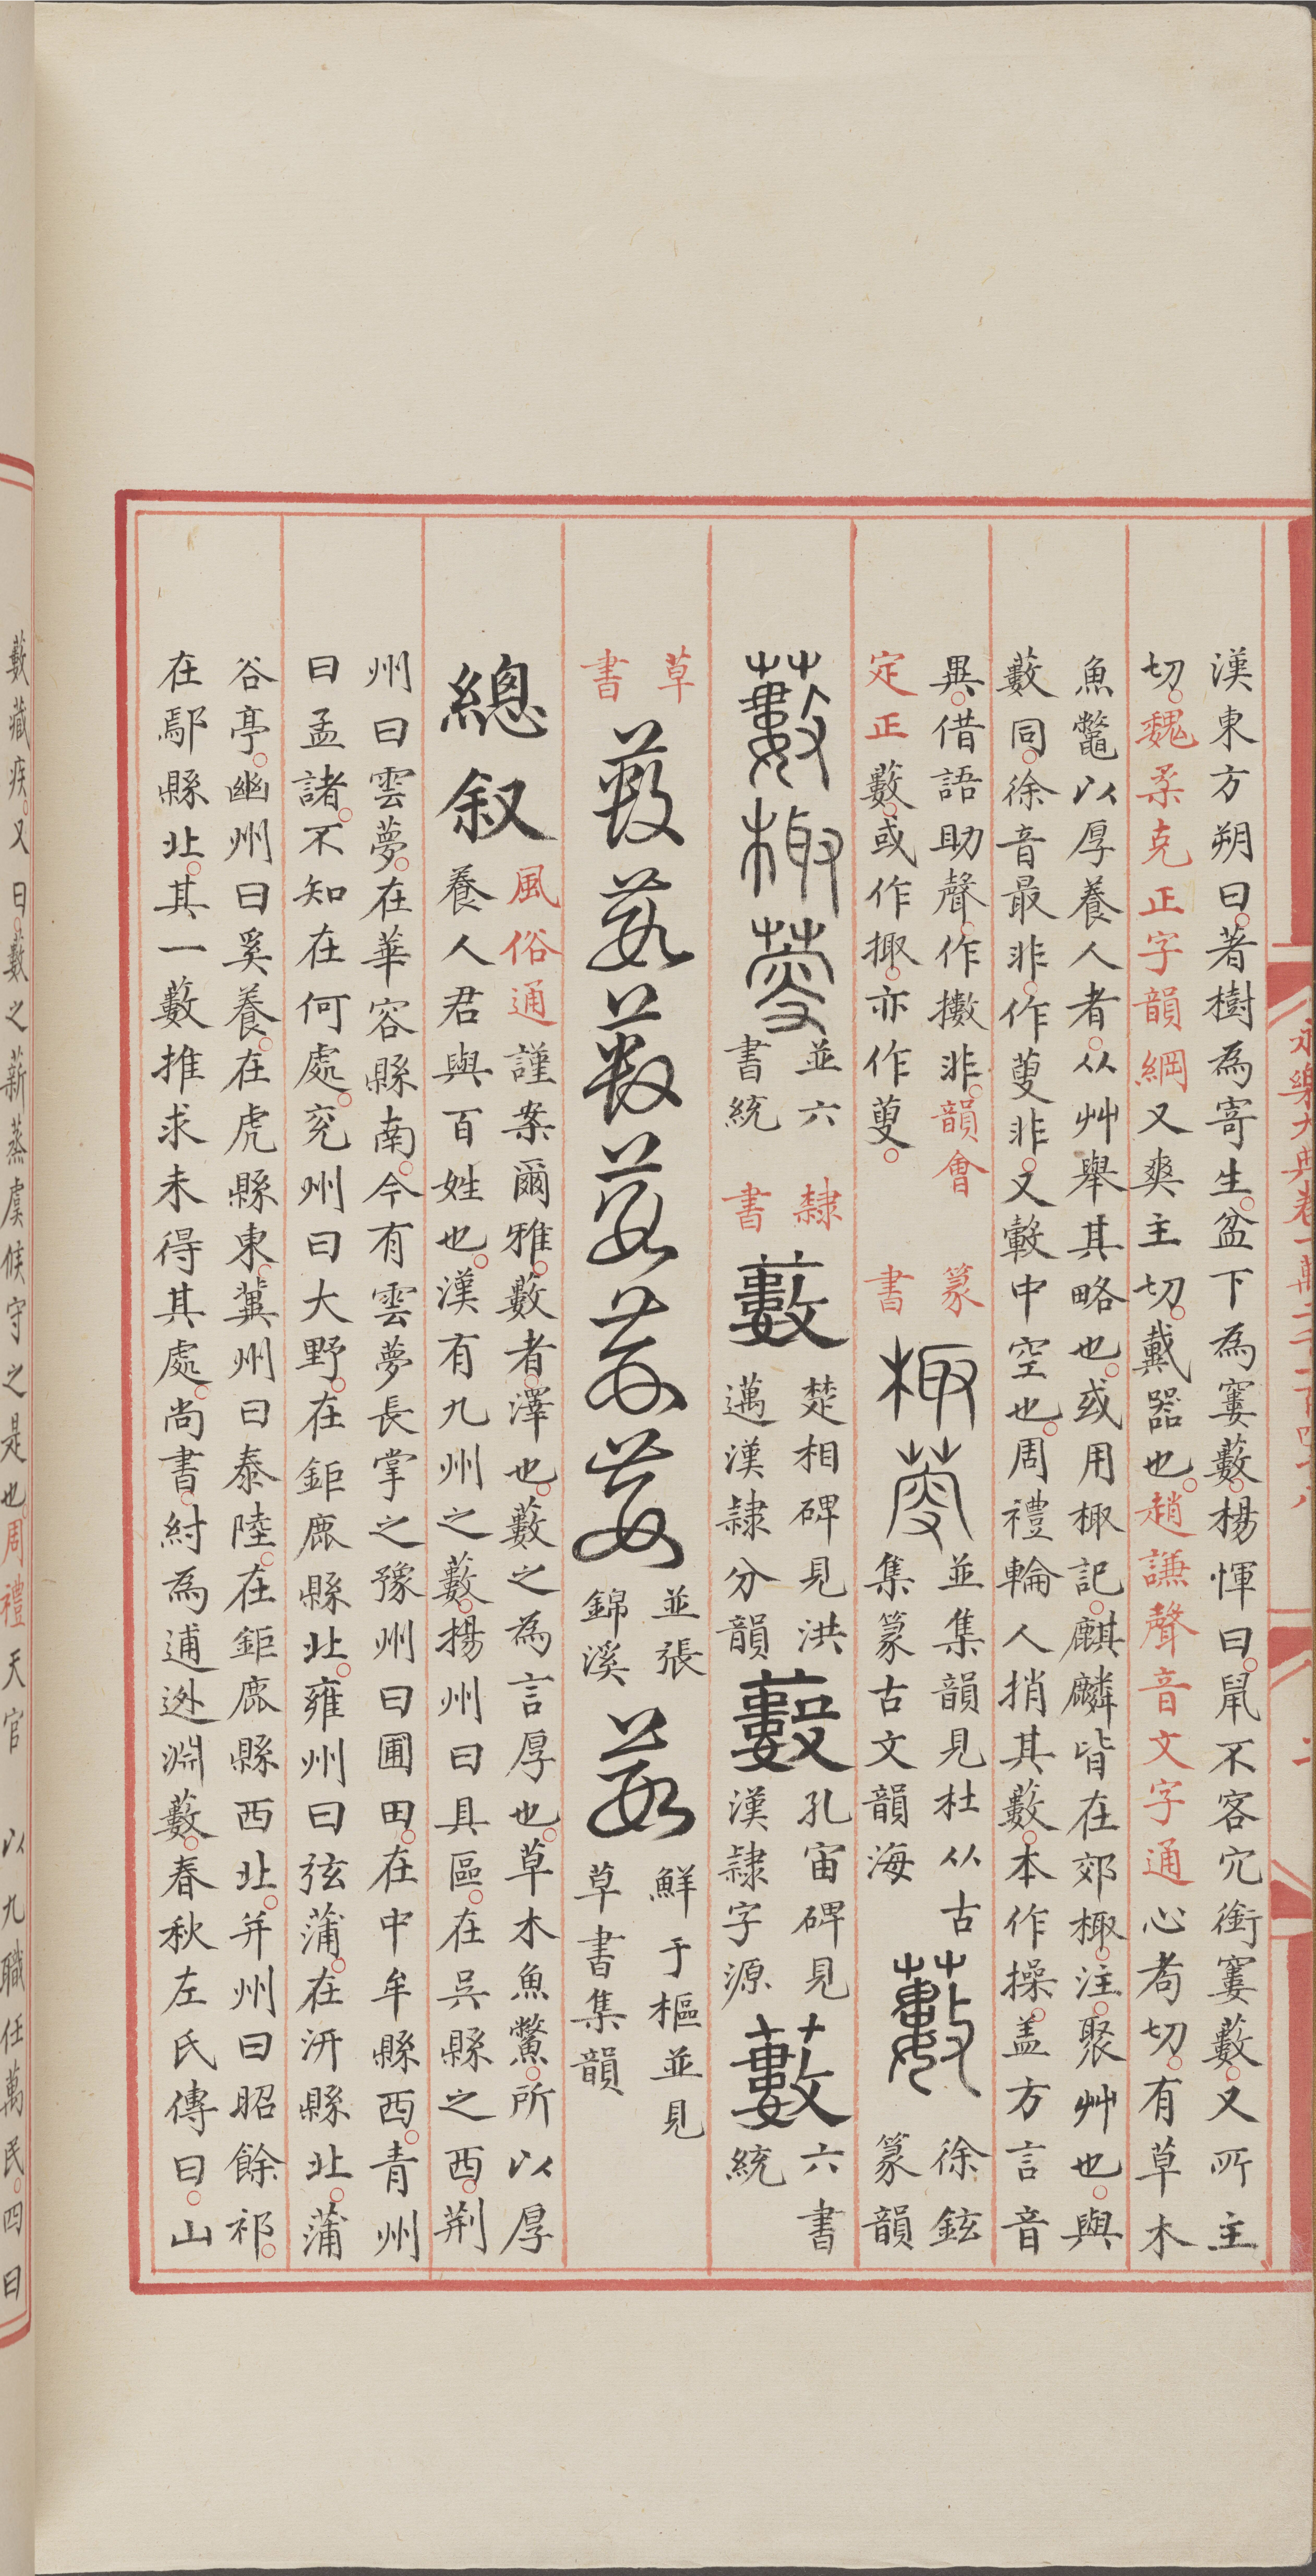 漢東方朔曰著樹為寄生盆下為窶藪楊惲曰鼠不容穴銜窶藪又所主
切魏柔克正字韻綱又爽主切戴器也趙謙聲音文字通心芶切有草木
魚鼈以厚養人者从艸舉其略也或用棷記麒麟皆在郊棷注聚艸也與
藪同徐音最非作蓃非又轂中空也周禮輪人捎其藪本作操盖方言音
異借語助聲作擻非韻會
定正藪或作掫亦作蓃
篆
書
棷蓃
並集韻見杜从古
集篆古文韻海
藪
徐鉉
篆韻
藪棷蓃
並六
書統
隸
書
藪
楚相碑見洪
邁漢隸分韻
藪
孔宙碑見
漢隸字源
藪
六書
統
草
書
藪藪藪藪藪藪
並張
錦溪
藪
鮮于樞並見
草書集韻
總叙
風俗通謹案爾雅藪者澤也藪之為言厚也草木魚鱉所以厚
養人君與百姓也漢有九州之藪揚州曰具區在吳縣之西荆
州曰雲夢在華容縣南今有雲夢長掌之豫州曰圃田在中牟縣西青州
曰孟諸不知在何處兖州曰大野在鉅鹿縣北雍州曰弦蒲在汧縣北蒲
谷亭幽州曰奚養在虎縣東冀州曰泰陸在鉅鹿縣西北并州曰昭餘祁
在鄔縣北其一藪推求未得其處尚書紂為逋逃淵藪春秋左氏傳曰山
藪藏疾又曰藪之薪蒸虞候守之是也周禮天官以九職任萬民四曰